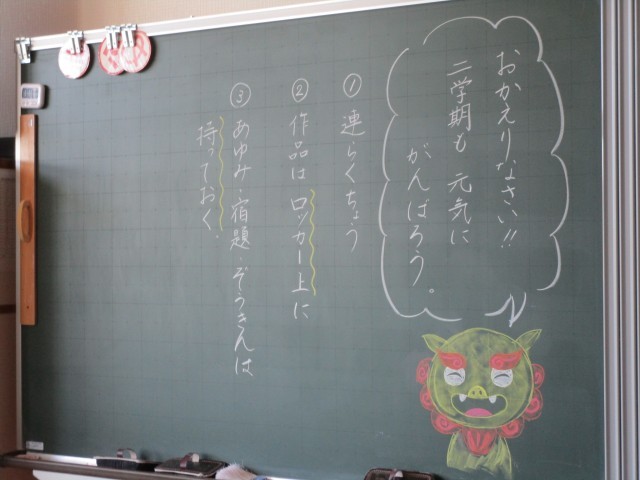 おかえりなさい!!
二学期も 元気に
がんばろう。
① 連らくちょう
② 作品は ロッカー上に
③ あゆみ・宿題・ぞうきんは
持っておく.